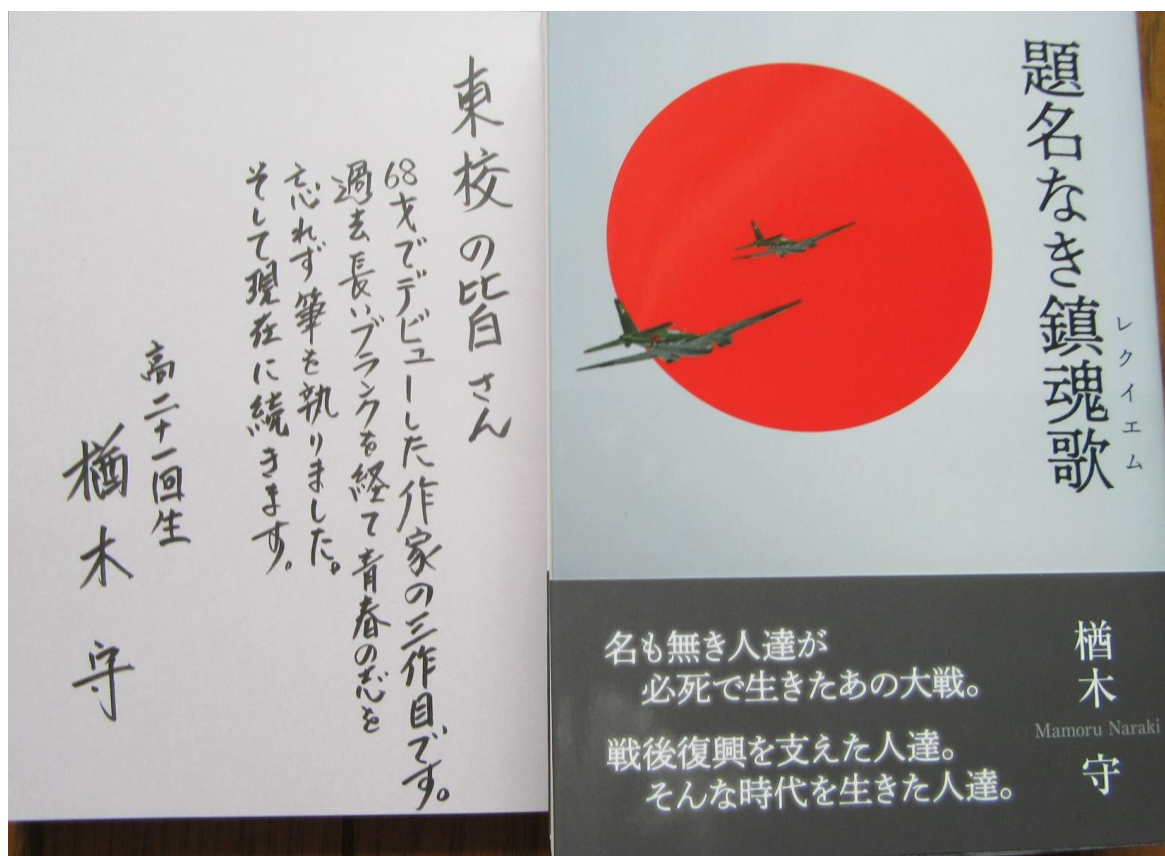 東校の皆さん
68才でデビューした作家の三作目です。
過去長いブランクを経て青春の志を
忘れず筆を執りました。
そして現在に続きます。
高二十一回生
楢木 守
題名なき鎮魂歌
レクイエム
名も無き人達が
必死で生きたあの大戦。
戦後復興を支えた人達。
そんな時代を生きた人達。
楢木 守
Mamoru Naraki